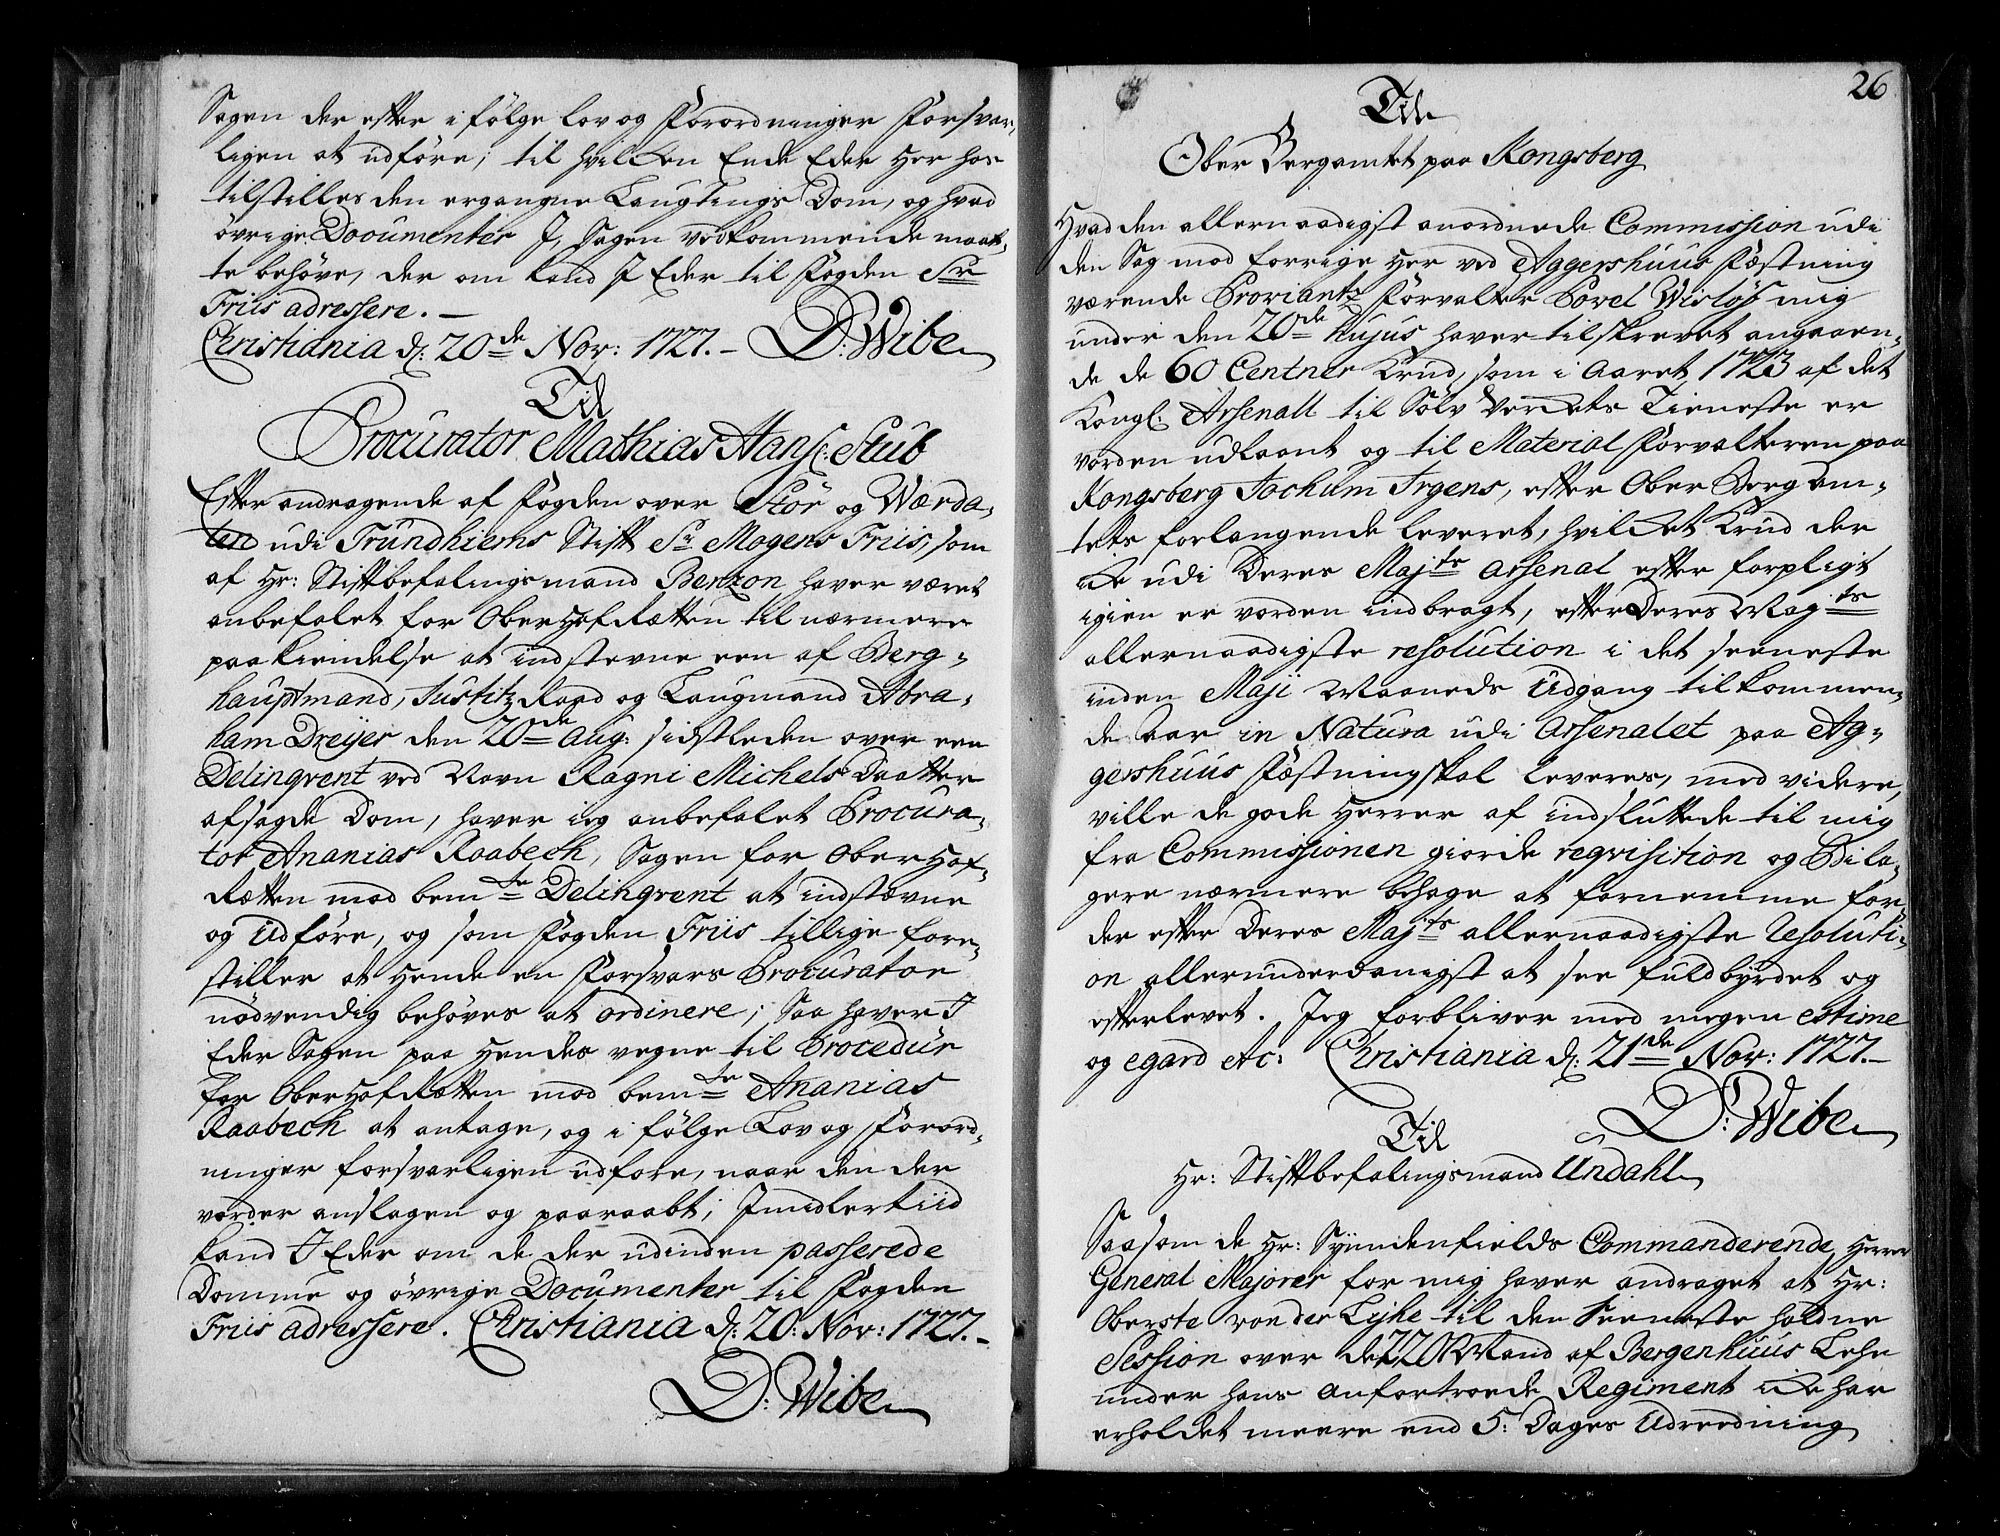 Sagen der efter i følge Lov og Forordninger Forsvar,
ligen at udføre; til hvilken Ende Eder her hos
tilstilles den ergangne Laugtings Dom, og hvad
øvrige Documenter J, Sagen vedkommende maat,
te behøve, der om kand J Eder til Fogden Sr
Friis adressere. —
Christiania d: 20de Nov: 1727. – D: Wibe
Til
Procurator Mathias Hans: Stub
Efter andragende af Fogden over Stör og Wærda,
len udi Trundhiems Stift Sr Mogens Friis, som
af Hr: Stiftbefalingsmand Benzon haver været
anbefalet for OberHofRætten til nærmere
paakiendelse at indstevne een af Berg,
hauptmand, Justitz Raad og Laugmand Abra,
ham Dreÿer den 20de Aug: sidstleden over een
Delinqvent ved Navn Ragni Michels Daatter
afsagde Dom, haver ieg anbefalet Procura,
tor Ananias Raabech, Sagen for OberHof,
Rætten mod bemte Delinqvent at indstævne
og Udføre, og som Fogden Friis tillige fore,
stiller at Hende en Forsvars Procurator
nødvendig behøves at ordinere; Saa haver J
Eder Sagen paa Hendes vegne til Procedür
for OberHofRætten mod bemte Ananias
Raabech at antage, og i følge Lov og Forord,
ninger forsvarligen udføre, naar den der
vorder anslagen og paaraabt; Jmidlertiid
kand J Eder om de der udinden passerede
Domme og øvrige Documenter til Fogden
Friis adressere. Christiania d: 20: Nov: 1727. –
D: Wibe
26
Til
Ober Bergamtet paa Kongsberg
Hvad den allernaadigst anordnede Commission udi
den Sag mod forrige Her ved Aggershuus Fæstning
værende Proviantz Forvalter Povel Wisløf mig
under den 20de hujus haver tilskrevet angaaen,
de de 60 Centner Krud, som i Aaret 1723 af det
Kongl. Arsenall til Sølv Verkets Tieneste er
vorden udlaant og til Material Forvalteren paa
Kongsberg Jochum Jrgens, efter Ober Berg Am,
tets forlangende leveret, hvilket Krud der
ike udi Deres Majts Arsenal efter forpligt
igien er vorden indbragt, efter Deres Mayts
allernaadigste resolution i det seeneste
inden Maji Maaneds Udgang tilkommen,
de Aar in Natura udi Arsenalet paa Ag,
gershuus Fæstning skal leveres, med videre,
ville de gode Herrer af indsluttede til mig
fra Commissionen giorde reqvisition og Bila,
gere nærmere behage at fornemme for
der efter Deres Majts allernaadigste Resoluti,
on allerunderdanigst at see fuldbÿrdet og
efterlevet. Jeg forbliver med megen estime
og egard etc: Christiania d: 21de Nov: 1727. –
D: Wibe
Til
Hr: Stiftbefalingsmand Undahl
Saasom de Hr: Sÿndenfields Commanderende Herrer
General Majorer for mig haver andraget at Hr:
Oberste von der Lÿhe til den seeneste holdne
Session over de 220 Mand af Bergenhuus Lehn
under hans anfortroede Regiment ike har
erholdet meere end 5: Dages Udreedning